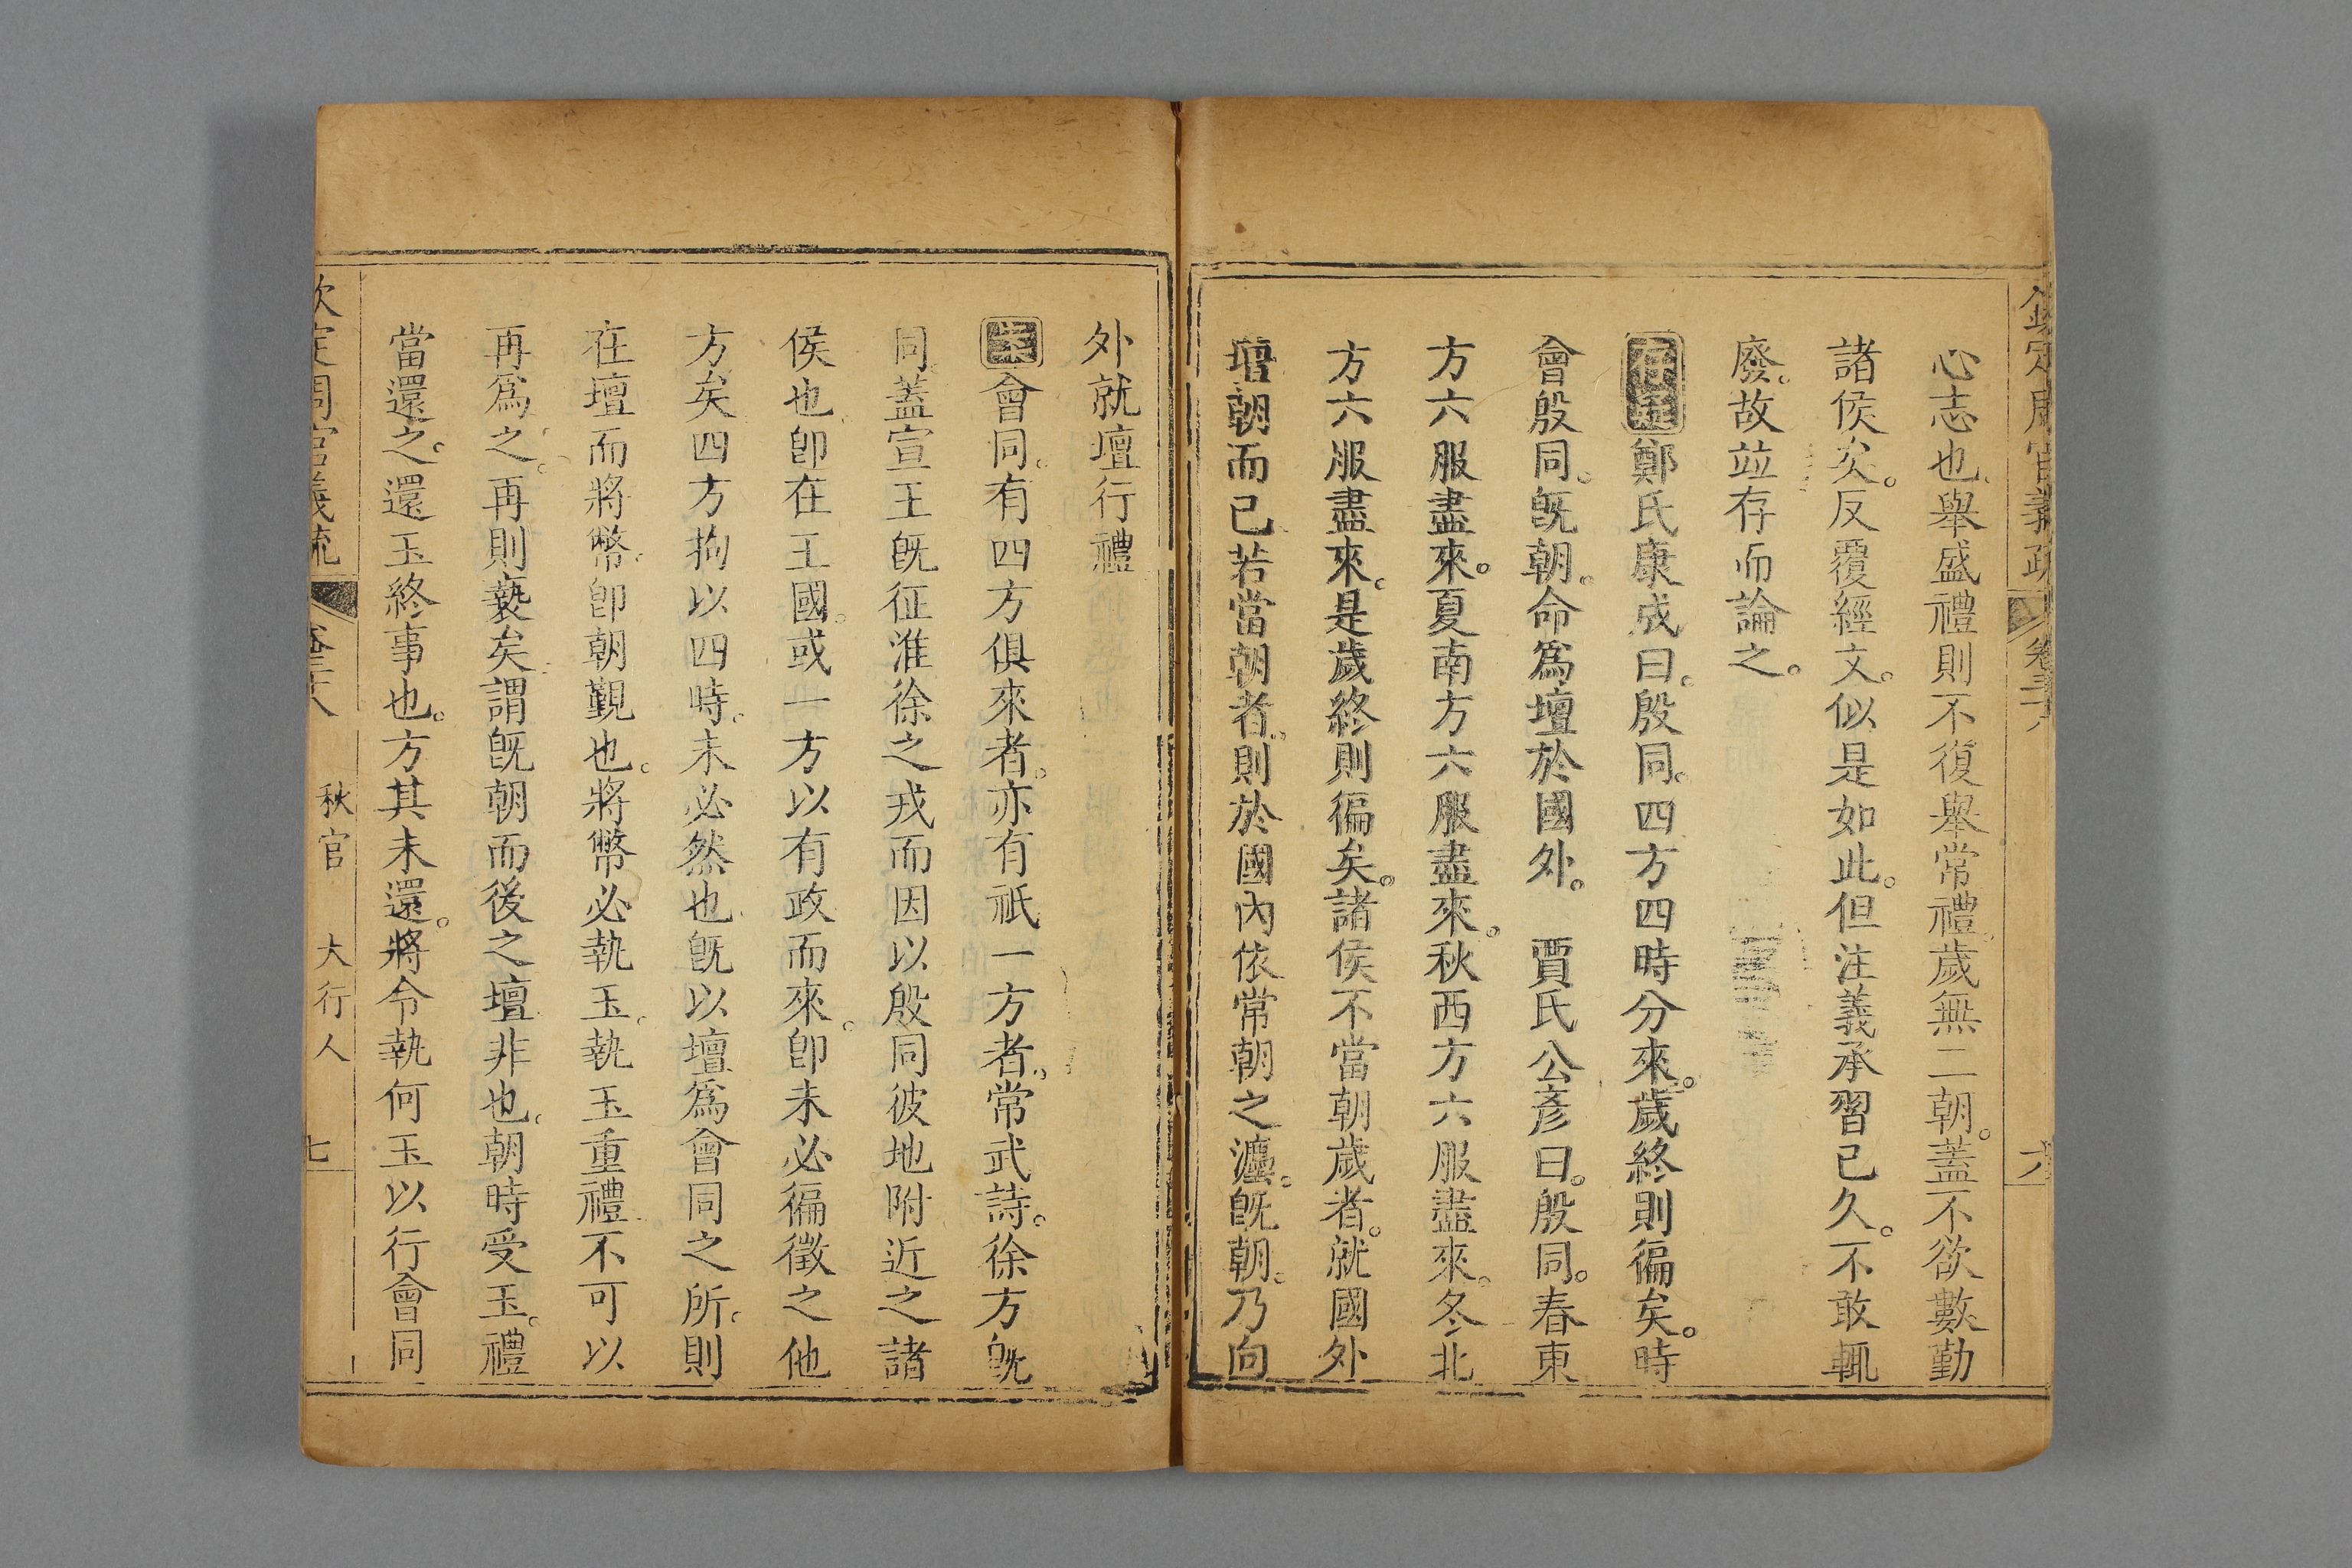 欽定周官義疏 卷三十八 六
心志也。舉盛禮則不復舉常禮。歲無二朝。蓋不欲數勤
諸侯矣。反覆經文。似是如此。但注義承習已久。不敢輒
廢。故竝存而論之。
存正鄭氏康成曰。殷同。四方四時分來。歲終則徧矣。時
會殷同。旣朝。命爲壇於國外。 賈氏公彥曰。殷同。春東
方六服盡來。夏南方六服盡來。秋西方六服盡來。冬北
方六服盡來。是歲終則徧矣。諸侯不當朝歲者。就國外
壇朝而已若當朝者。則於國內依常朝之灋。旣朝。乃向
外就壇行禮
案會同。有四方俱來者。亦有祇一方者。常武詩。徐方旣
同。蓋宣王旣征淮徐之戎而因以殷同彼地附近之諸
侯也。卽在王國。或一方以有政而來。卽未必徧徵之他
方矣四方拘以四時。未必然也。旣以壇爲會同之所。則
在壇而將幣。卽朝覲也。將幣必執玉。執玉重禮。不可以
再爲之。再則褻矣。謂旣朝而後之壇非也。朝時受玉。禮
當還之。還玉終事也。方其未還。將令執何玉以行會同
欽定周官義疏 卷三十八 秋官 大行人 七